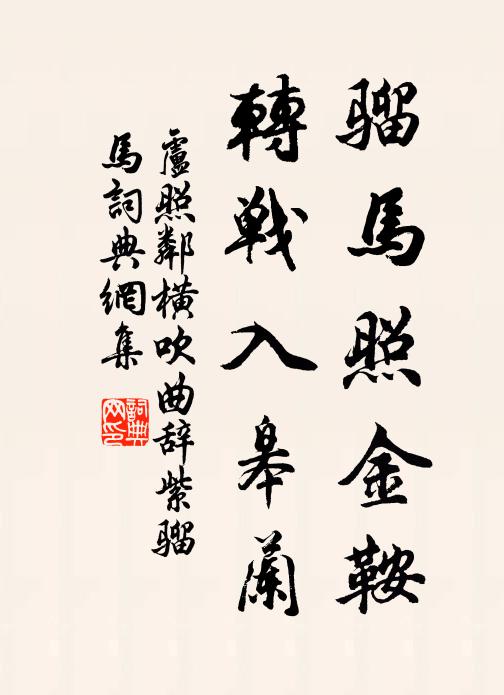 骝馬照金鞍
轉戰入皋蘭
盧照鄰橫吹曲辞紫骝
馬詞典網集
詞典
网印